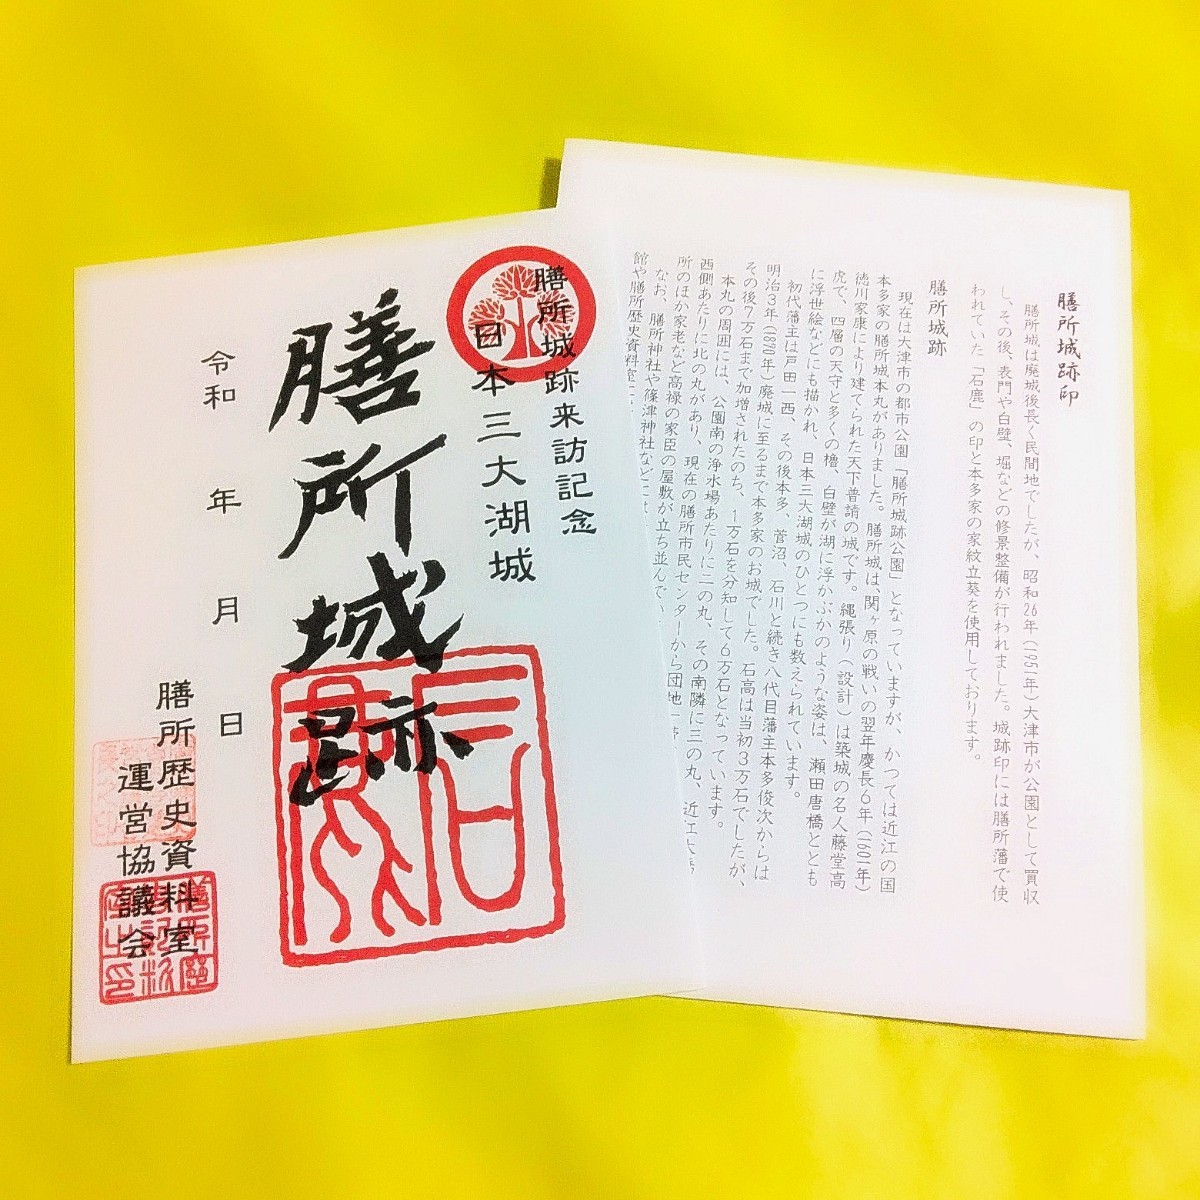 膳所城跡来訪記念
日本三大湖城
膳所城跡
令和 年 月 日
膳所歴史資料室
運営協議会
膳所城跡印
膳所城は廃城後長く民間地でしたが、昭和26年(1951年)大津市が公園として買収
し、その後、表門や白壁、堀などの修景整備が行われました。城跡印には膳所藩で使
われていた「石鹿」の印と本多家の家紋立葵を使用しております。
膳所城跡
現在は大津市の都市公園「膳所城跡公園」となっていますが、かつては近江の国
本多家の膳所城本丸がありました。膳所城は、関ヶ原の戦いの翌年慶長6年(1601年)
徳川家康により建てられた天下普請の城です。縄張り(設計)は築城の名人藤堂高
虎で、四層の天守と多くの櫓、白壁が湖に浮かぶかのような姿は、瀬田唐橋ととも
に浮世絵などにも描かれ、日本三大湖城のひとつにも数えられています。
初代藩主は戸田一西、その後本多、菅沼、石川と続き八代目藩主本多俊次からは
明治3年(1870年)廃城に至るまで本多家のお城でした。石高は当初3万石でしたが、
その後7万石まで加増されたのち、1万石を分知して6万石となっています。
本丸の周囲には、公園南の浄水場あたりに二の丸、その南隣に三の丸、近江大橋
西側あたりに北の丸があり、現在の膳所市民センターから団地一帯
所のほか家老など高禄の家臣の屋敷が立ち並んでい
なお、膳所神社や篠津神社などには
館や膳所歴史資料室